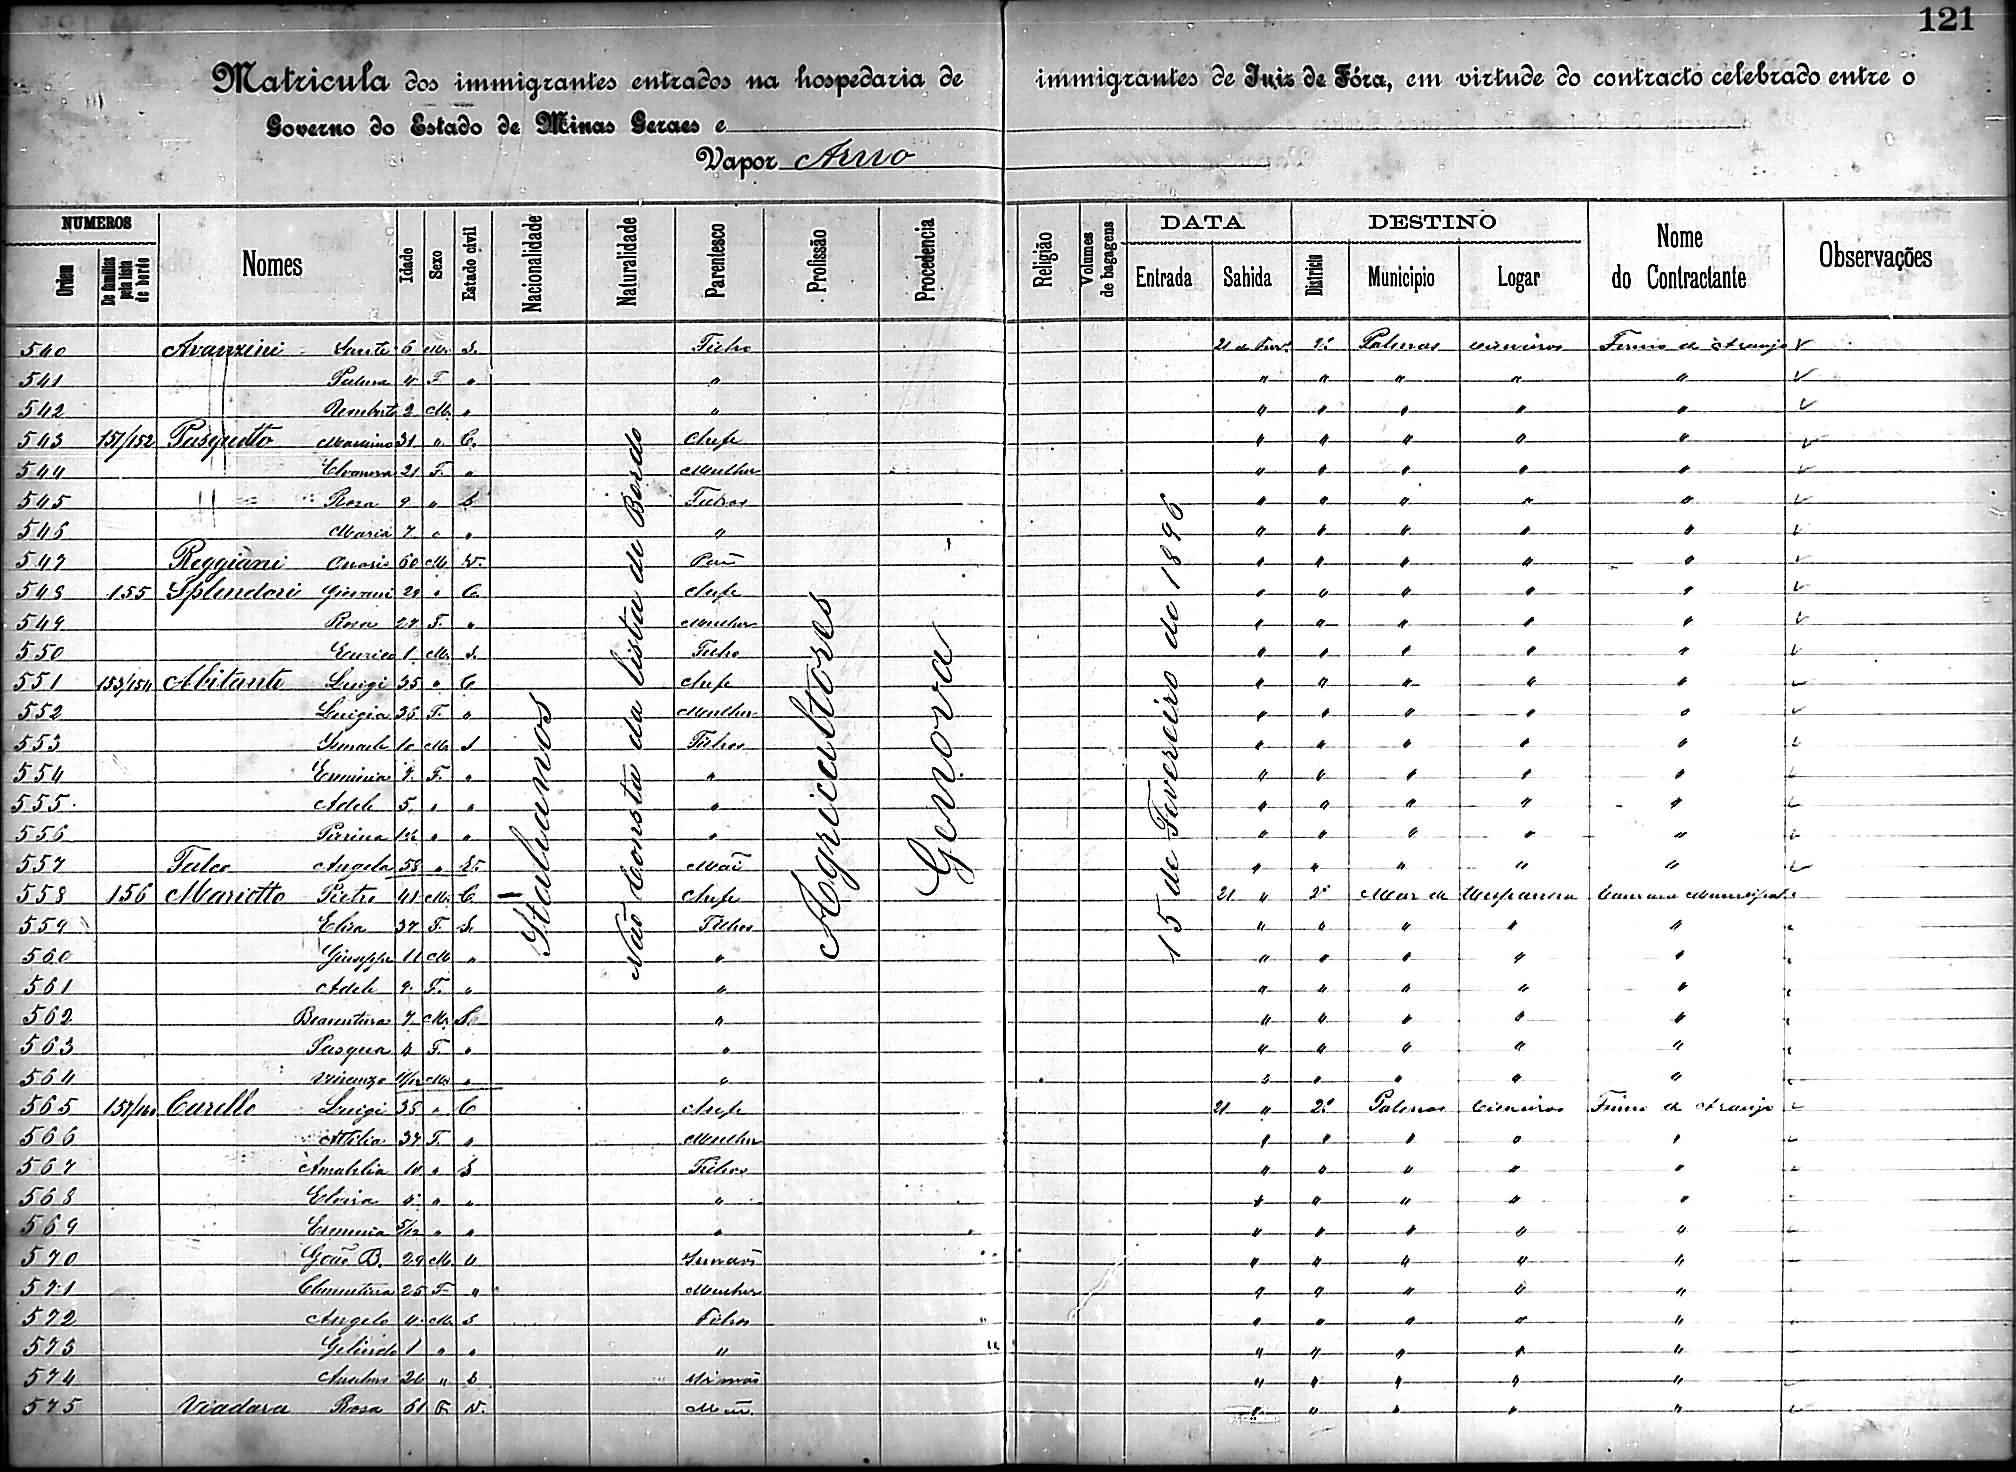 121
Matricula dos immigrantes entrados na hospedaria de immigrantes de Juiz de Fóra, em virtude do contracto celebrado entre o
Governo do Estado de Minas Geraes e
Vapor Arno
NUMEROS DATA DESTINO
Ordem De familias pela lista de bordo Nomes Idade Sexo Estado civil Nacionalidade Naturalidade Parentesco Profissão Procedencia Religião Volumes de bagagens Entrada Sahida Districto Municipio Logar Nome do Contractante Observações
Italianos
Não Consta da lista de Bordo
Agricultores
Genova
15 de Fevereiro de 1896
540 Avanzini Sante 6 M. S. Filho 21 de Fevº 2º Palmas Firmo de Araujo
541 F. " " " " " " " "
542 2 M. " " " " " " " "
543 151/152 Pasquotto Massimo 31 " C. Chefe " " " " "
544 Eleonora 21 F. " Mulher " " " " "
545 Rosa 9 " S Filhos " " " " "
546 Maria 7 " " " " " " " "
547 Reggiani 60 M. V. Pai " " " " "
548 155 Splendori Giovani 29 " C. Chefe " " " " "
549 Rosa 27 F. " Mulher " " " " "
550 Enrico 1 M. S. Filho " " " " "
551 153/154 Abitante Luigi 35 " C Chefe " " " " "
552 Luigia 36 F. " Mulher " " " " "
553 Ismaele 10 M. S Filhos " " " " "
554 Erminia 9 F. " " " " " " "
555 Adele 5 " " " " " " " "
556 Pierina " " " " " " " "
557 Falco Angela 58 " V. Mãi " " " " "
558 156 Mariotto Pietro 41 M. C. Chefe 21 " 2º Mar de Hespanha Camara Municipal
559 Elisa 37 F. S. Filhos " " " " "
560 Giuseppe 11 M " " " " " " "
561 Adele 9 F. " " " " " " "
562 Boaventura 7 M. S. " " " " " "
563 Pasqua 4 F. " " " " " " "
564 Vincenzo 11/12 M. " " " " " " "
565 Curello Luigi 35 " C Chefe 21 " 2º Palmas Firmo de Araujo
566 Attilia 37 F. " Mulher " " " " "
567 Amabilia 10 " S Filhos " " " " "
568 Elvira 4 " " " " " " " "
569 Erminia 5/12 " " " " " " " "
570 João B. 29 M. Irmão " " " " "
571 Clementina 25 F " Mulher " " " " "
572 Angelo 4 M. S Filhos " " " " "
573 Gelindo 1 " " " " " " " "
574 Anselmo 26 " S Irmão " " " " "
575 Viadara Rosa 61 F. V. Mãi. " " " " "